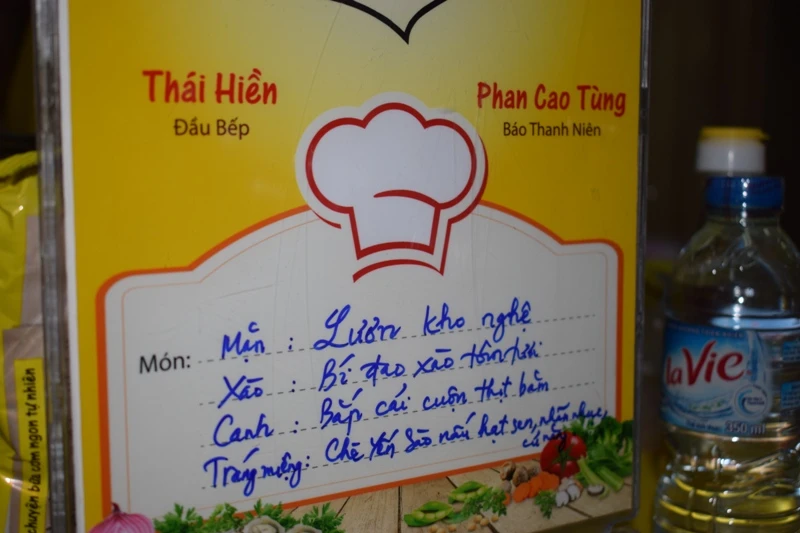 Thái Hiền
Đầu Bếp
Phan Cao Tùng
Báo Thanh Niên
Món: Mặn : Lươn kho nghệ
Xào : Bí đao xào tôm tươi
Canh : Bắp cải cuộn thịt bằm
Tráng miệng : Chè Yến Sào nấu hạt sen, nhãn nhục,
laVie
350 ml
chuyên bữa cơm ngon tự nhiên